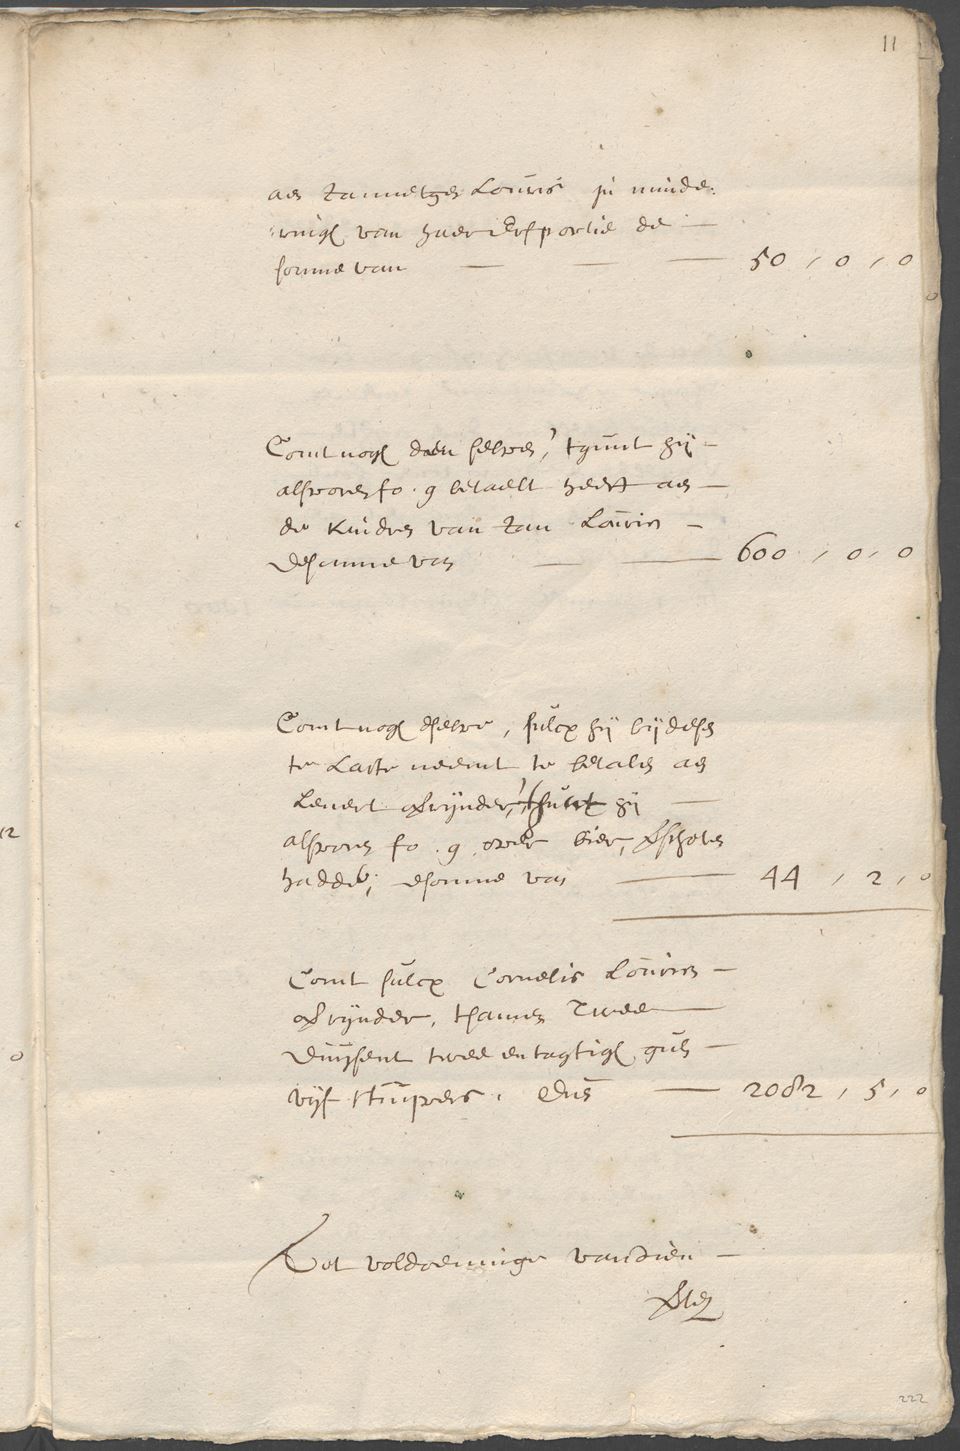 11
aen Jannetgen Louris in minde-
ringh van haer Erfportie de
somme van 50 , 0 , 0
Comt nogh den selven, tgunt hij
alhoren fo. 9 betaelt heeft aen
de kinders van Jan Louris
de somme van 600 , 0 , 0
Comt nogh deselve, sulcx hij bij desen
te Laste neemt te betalen aen
Lenert hij
alhoren fo. 9 over bier,
hadde, de somme van 44 , 2 , 0
Comt sulcx Cornelis Louris
tsamen Twee
duijsent twee en tagtigh gul
vijf stuijvers, dus 2082 , 5 , 0
Tot voldoeninge van dien
222